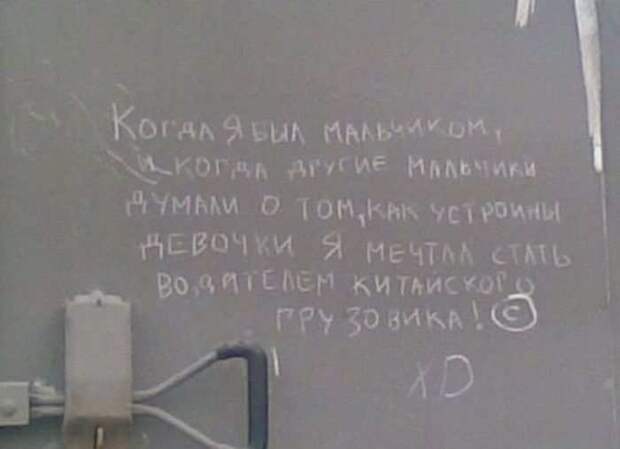 Когда я был мальчиком,
и когда другие мальчики
думали о том, как устроины
девочки я мечтал стать
водятелем китайского
грузовика! ©
XD